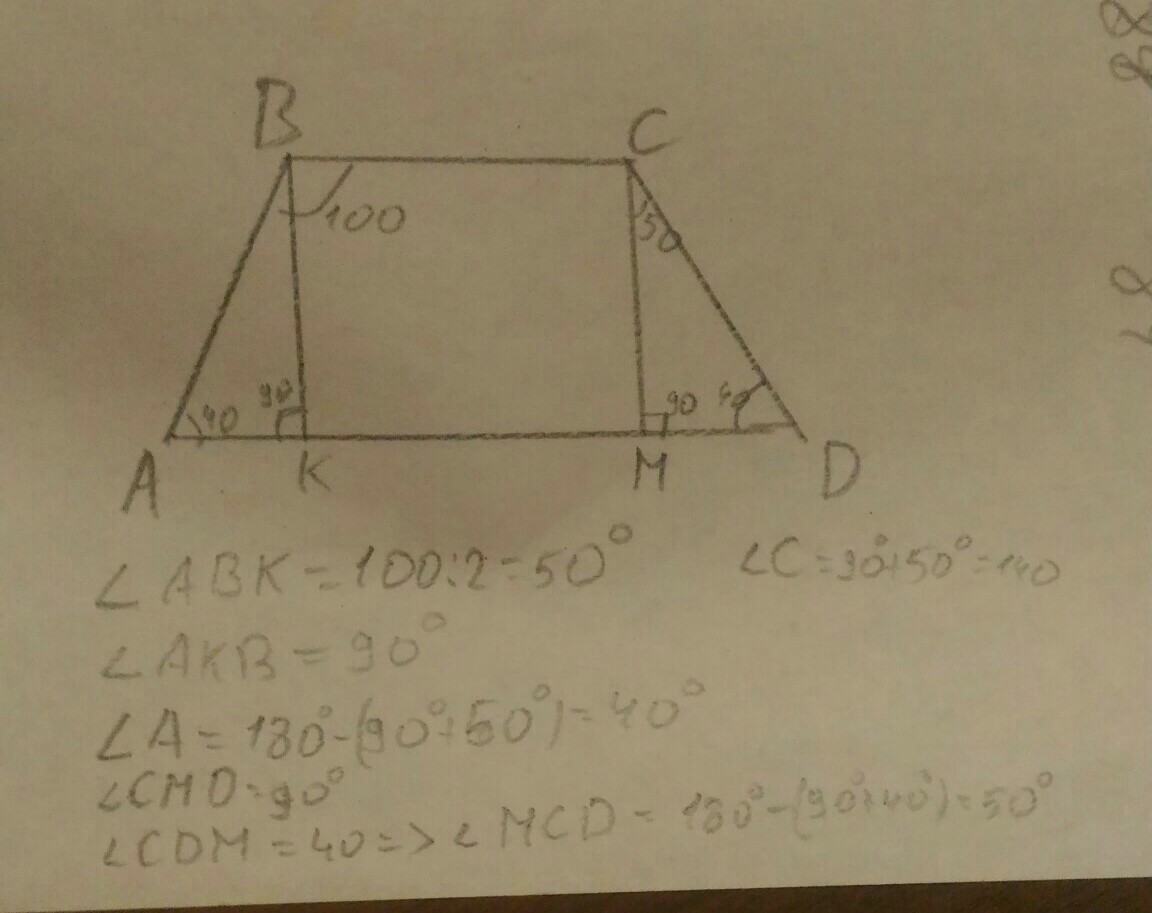 B C
100 50
40 90 90 40
A K M D
∠ABK = 100:2 = 50° ∠C = 90°+50° = 140
∠AKB = 90°
∠A = 180°-(90°+50°) = 40°
∠CMD = 90°
∠CDM = 40 => ∠MCD = 180°-(90°+40°) = 50°